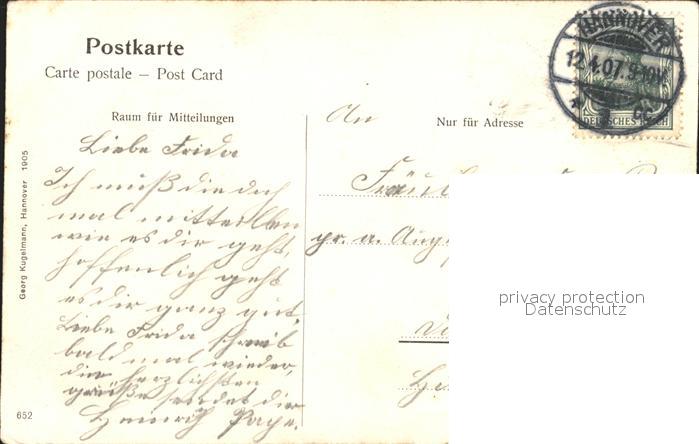 Postkarte
Carte postale – Post Card
Raum für Mitteilungen
Nur für Adresse
HANNOVER
12.4.07.9-10V.
DEUTSCHES REICH
Georg Kugelmann, Hannover 1905
Liebe Frida
Ich muß die doch
mal mitteilen
wie es dir geht,
hoffenlich geht
es dir ganz gut,
Liebe Frida schreib
bald mal wieder,
die herzlichsten
grüße sendet dir
Heinrich Pape.
An
Fräul
gr. a. Aug
652
privacy protection
Datenschutz